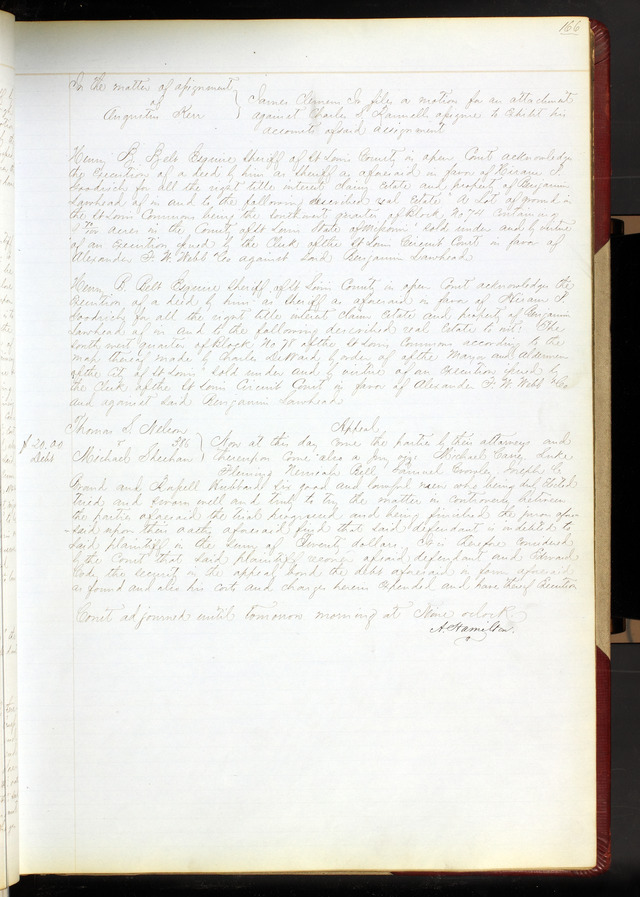 166
In the matter of assignment
of
Augustus Kerr
James Clemens Jr files a motion for an attachment
against Charles S Rannells assignee to Exhibit his
accounts of said assignment
Henry B. Belt Esquire Sheriff of St Louis County in open Court acknowledges
the Execution of a deed by him as Sheriff as aforesaid in favor of Hiram S.
Goodrich for all the right title interest claim Estate and property of Benjamin
Lawhead of in and to the following described real Estate A Lot of ground in
the St Louis Commons being the southwest quarter of Block No 74 Containing
Ten acres in the County of St Louis State of Missouri sold under and by virtue
of an Execution issued by the Clerk of the St Louis Circuit Court in favor of
Alexander F. W. Webb & Co against said Benjamin Lawhead
Henry B. Belt Esquire Sheriff of St Louis County in open Court acknowledges the
Execution of a deed by him as Sheriff as aforesaid in favor of Hiram S.
Goodrich for all the right title interest claim Estate and property of Benjamin
Lawhead of in and to the following described real Estate to wit: The
south west quarter of Block No 78 of the St Louis Commons according to the
map thereof made by Charles DeWard by order of the Mayor and Aldermen
of the City of St Louis sold under and by virtue of an Execution issued by
the Clerk of the St Louis Circuit Court in favor of Alexander F. W. Webb & Co
and against said Benjamin Lawhead
Thomas S. Nelson
v 395
Michael Sheehan
$20.00
Debt
Appeal
Now at this day come the parties by their attorneys and
thereupon come also a jury viz: Michael Luke
Fleming Nemiah Bell, Samuel Joseph C.
and Hubbard six good and lawful men who being duly Elected
tried and sworn well and truly to try the matter in controversy between
the parties aforesaid the trial progressed and being finished the jurors afore
said upon their oaths aforesaid find that said defendant is indebted to
said plaintiff in the sum of Twenty dollars It is therefore considered
by the Court that said plaintiff recover of said defendant and Edward
the security in the appeal bond the debt aforesaid in form aforesaid
as found and also his costs and charges herein Expended and have thereof Execution
Court adjourned until tomorrow morning at Nine oclock
A. Hamilton.